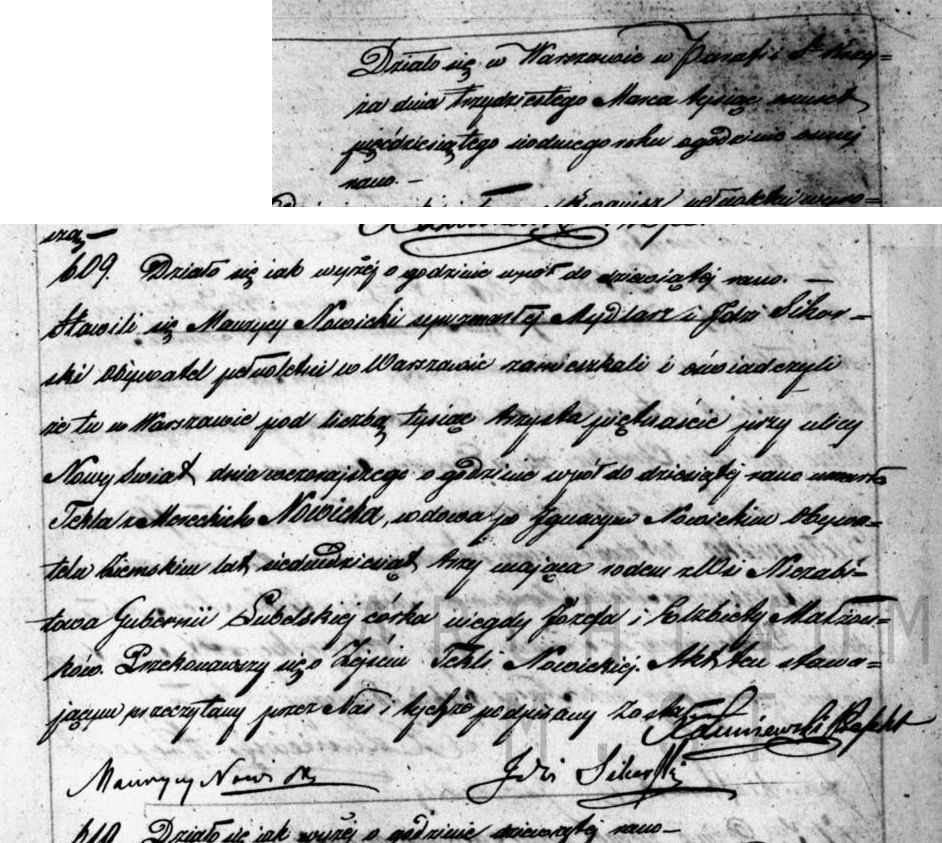 Działo się w Warszawie w Parafii Sgo Krzy=
ża dnia trzydziestego Marca tysiąc ośmset
pięćdziesiątego siódmego roku o godzinie ósmej
rano. —
pełnoletni
609. Działo się jak wyżej o godzinie wpół do dziewiątej rano. —
Stawili się Maurycy Nowicki syn zmarłej Mydlarz i Jdzi Sikor=
ski Obywatel pełnoletni w Warszawie zamieszkali i oświadczyli
że tu w Warszawie pod liczbą tysiąc trzysta piętnaście przy ulicy
Nowy Świat dnia wczorajszego o godzinie wpół do dziesiątej rano umarła
Tekla z Mereckich Nowicka, wdowa po Jgnacym Nowickim Obywa=
telu Ziemskim lat siedmdziesiąt trzy mająca rodem z Wsi Niezabi=
towa Gubernii Lubelskiej córka niegdy Józefa i Elżbiety Małżon=
ków. Przekonawszy się o Zejściu Tekli Nowickiej. Akt ten stawa=
jącym przeczytany przez Nas i tychże podpisany został
Maurycy Nowicki Jdzi Sikorski
610. Działo się jak wyżej o godzinie dziewiątej rano —
ARCHIWUM